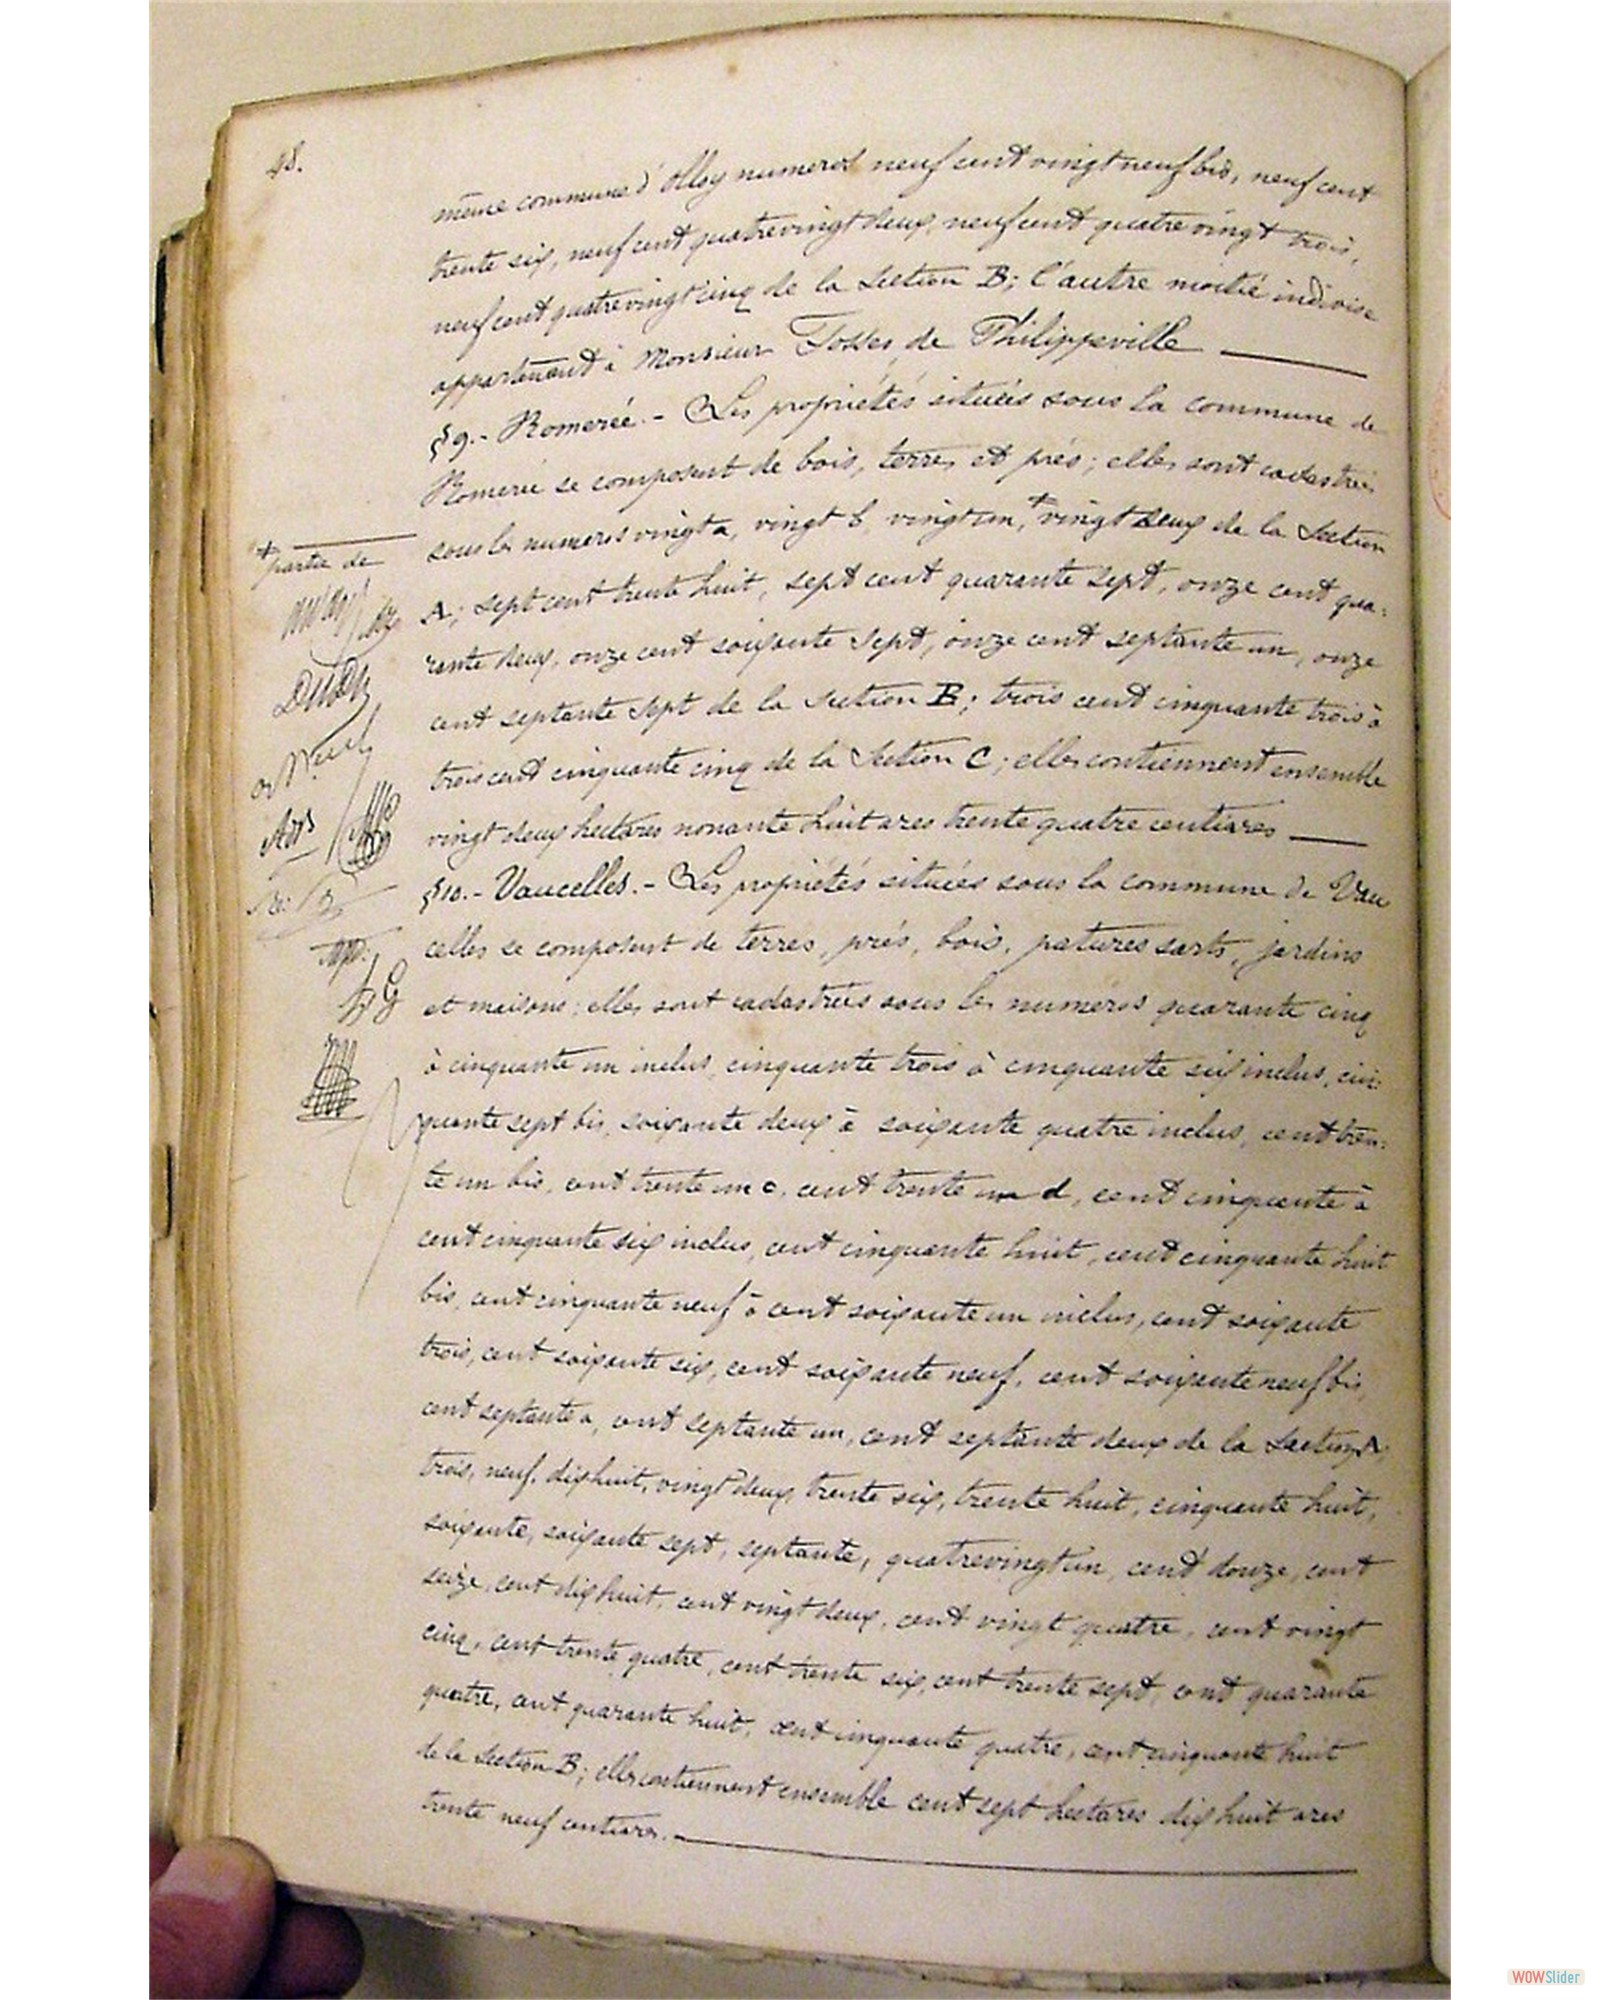 48.
même commune d'Olloy numeros neuf cent vingt neuf bis, neuf cent
trente six, neuf cent quatre vingt deux, neuf cent quatre vingt trois,
neuf cent quatre vingt cinq de la Section B; l'autre moitié indivise
appartenant à Monsieur de Philippeville
§9.- Romerée.- Les propriétés situées sous la commune de
Romerée se composent de bois, terres et prés; elles sont cadastrées
sous les numeros vingt a, vingt b, vingt un, + vingt deux de la Section
+ partie de
A; sept cent trente huit, sept cent quarante sept, onze cent qua-
rante deux, onze cent soixante sept, onze cent septante un, onze
cent septante sept de la Section B; trois cent cinquante trois à
trois cent cinquante cinq de la Section C; elles contiennent ensemble
vingt deux hectares nonante huit ares trente quatre centiares
§10.- Vaucelles.- Les propriétés situées sous la commune de Vau
celles se composent de terres, prés, bois, patures sarts, jardins
et maisons; elles sont cadastrées sous les numéros quarante cinq
à cinquante un inclus, cinquante trois à cinquante six inclus, cin-
quante sept bis, soixante deux à soixante quatre inclus, cent tren-
te un bis, cent trente un c, cent trente un d, cent cinquante à
cent cinquante six inclus, cent cinquante huit, cent cinquante huit
bis, cent cinquante neuf à cent soixante un inclus, cent soixante
trois, cent soixante six, cent soixante neuf, cent soixante neuf bis,
cent septante a, cent septante un, cent septante deux de la Section A;
trois, neuf, dix huit, vingt deux, trente six, trente huit, cinquante huit,
soixante, soixante sept, septante, quatre vingt un, cent douze, cent
seize, cent dix huit, cent vingt deux, cent vingt quatre, cent vingt
cinq, cent trente quatre, cent trente six, cent trente sept, cent quarante
quatre, cent quarante huit, cent cinquante quatre, cent cinquante huit
de la Section B; elles contiennent ensemble cent sept hectares dix huit ares
trente neuf centiares.
WOWSlider